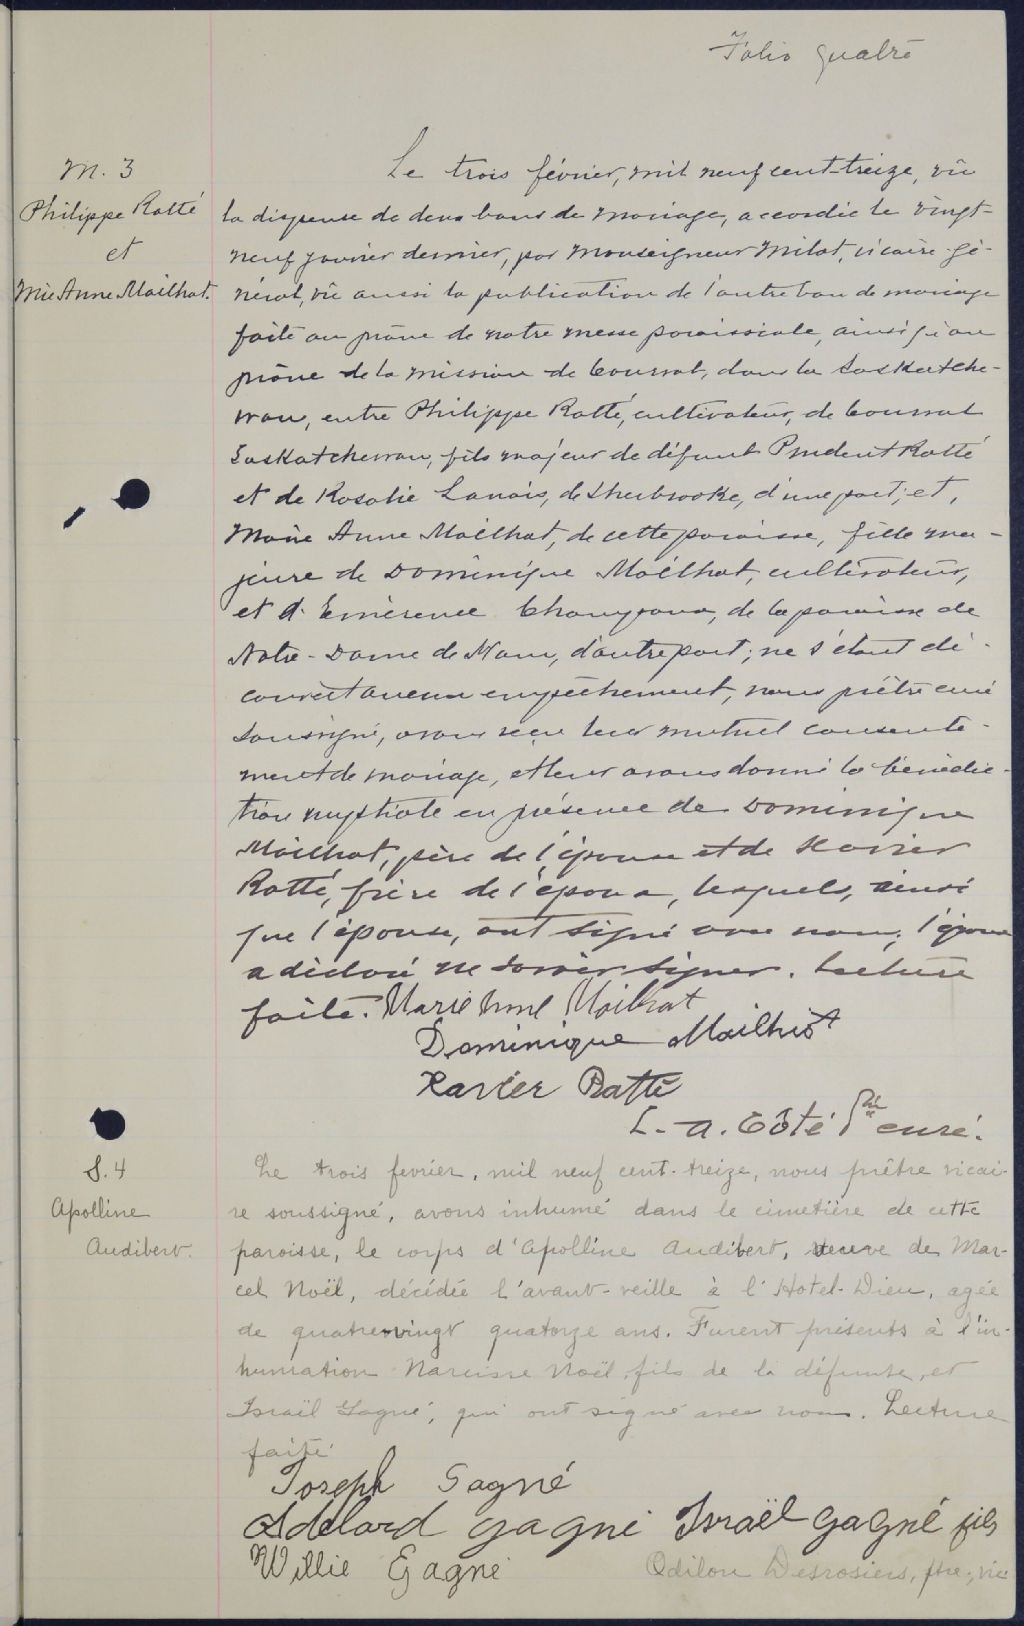 Folio quatre
M. 3
Philippe Ratté
et
Mie Anne Mailhot.
Le trois février, mil neuf cent-treize, vû
la dispense de deux bans de mariage, accordée le vingt-
neuf janvier dernier, par Monseigneur Milot, vicaire-gé-
néral, vû aussi la publication de l'autre ban de mariage
faite au prône de notre messe paroissiale, ainsi qu'au
prône de la mission de Courval, dans la Saskatche-
wan, entre Philippe Ratté, cultivateur, de Courval
Saskatchewan, fils majeur de défunt Prudent Ratté
et de Rosalie Lanois, de Sherbrooke, d'une part; et,
Marie Anne Mailhot, de cette paroisse, fille ma-
jeure de Dominique Mailhot, cultivateur,
et d'Emérence Champoux, de la paroisse de
Notre-Dame de Ham, d'autre part; ne s'étant dé-
couvert aucun empêchement, nous prêtre curé
soussigné, avons reçu leur mutuel consente-
ment de mariage, et leur avons donné la bénédic-
tion nuptiale en présence de Dominique
Mailhot, père de l'épouse et de Xavier
Ratté, frère de l'époux, lesquels, ainsi
que l'épouse, ont signé avec nous; l'époux
a déclaré ne savoir signer. Lecture
faite. Marie Anne Mailhot
Dominique Mailhiot
Xavier Ratté
L.-A. Côté Ptre curé.
S. 4
Apolline
Audibert.
Le trois fevrier, mil neuf cent-treize, nous prêtre vicai-
re soussigné, avons inhumé dans le cimetière de cette
paroisse, le corps d'Apolline Audibert, veuve de Mar-
cel Noël, décédée l'avant-veille à l'Hotel-Dieu, agée
de quatre-vingt quatorze ans. Furent présents à l'in-
humation Narcisse Noël, fils de la défunte, et
Israël Gagné, qui ont signé avec nous. Lecture
faite.
Joseph Gagné
Adelard gagné Israël Gagné fils
Willie Gagné
Odilon Desrosiers, ptre, vic